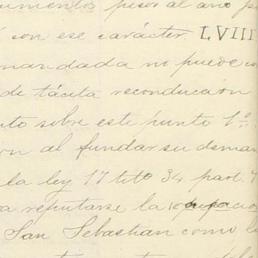 pesos al año
con ese carácter LVIII
mandada no puede
de tácita reconducción
sobre este punto 1º
al fundar su
la ley 17 titº 34 part.
a reputarse la
San Sebastian como